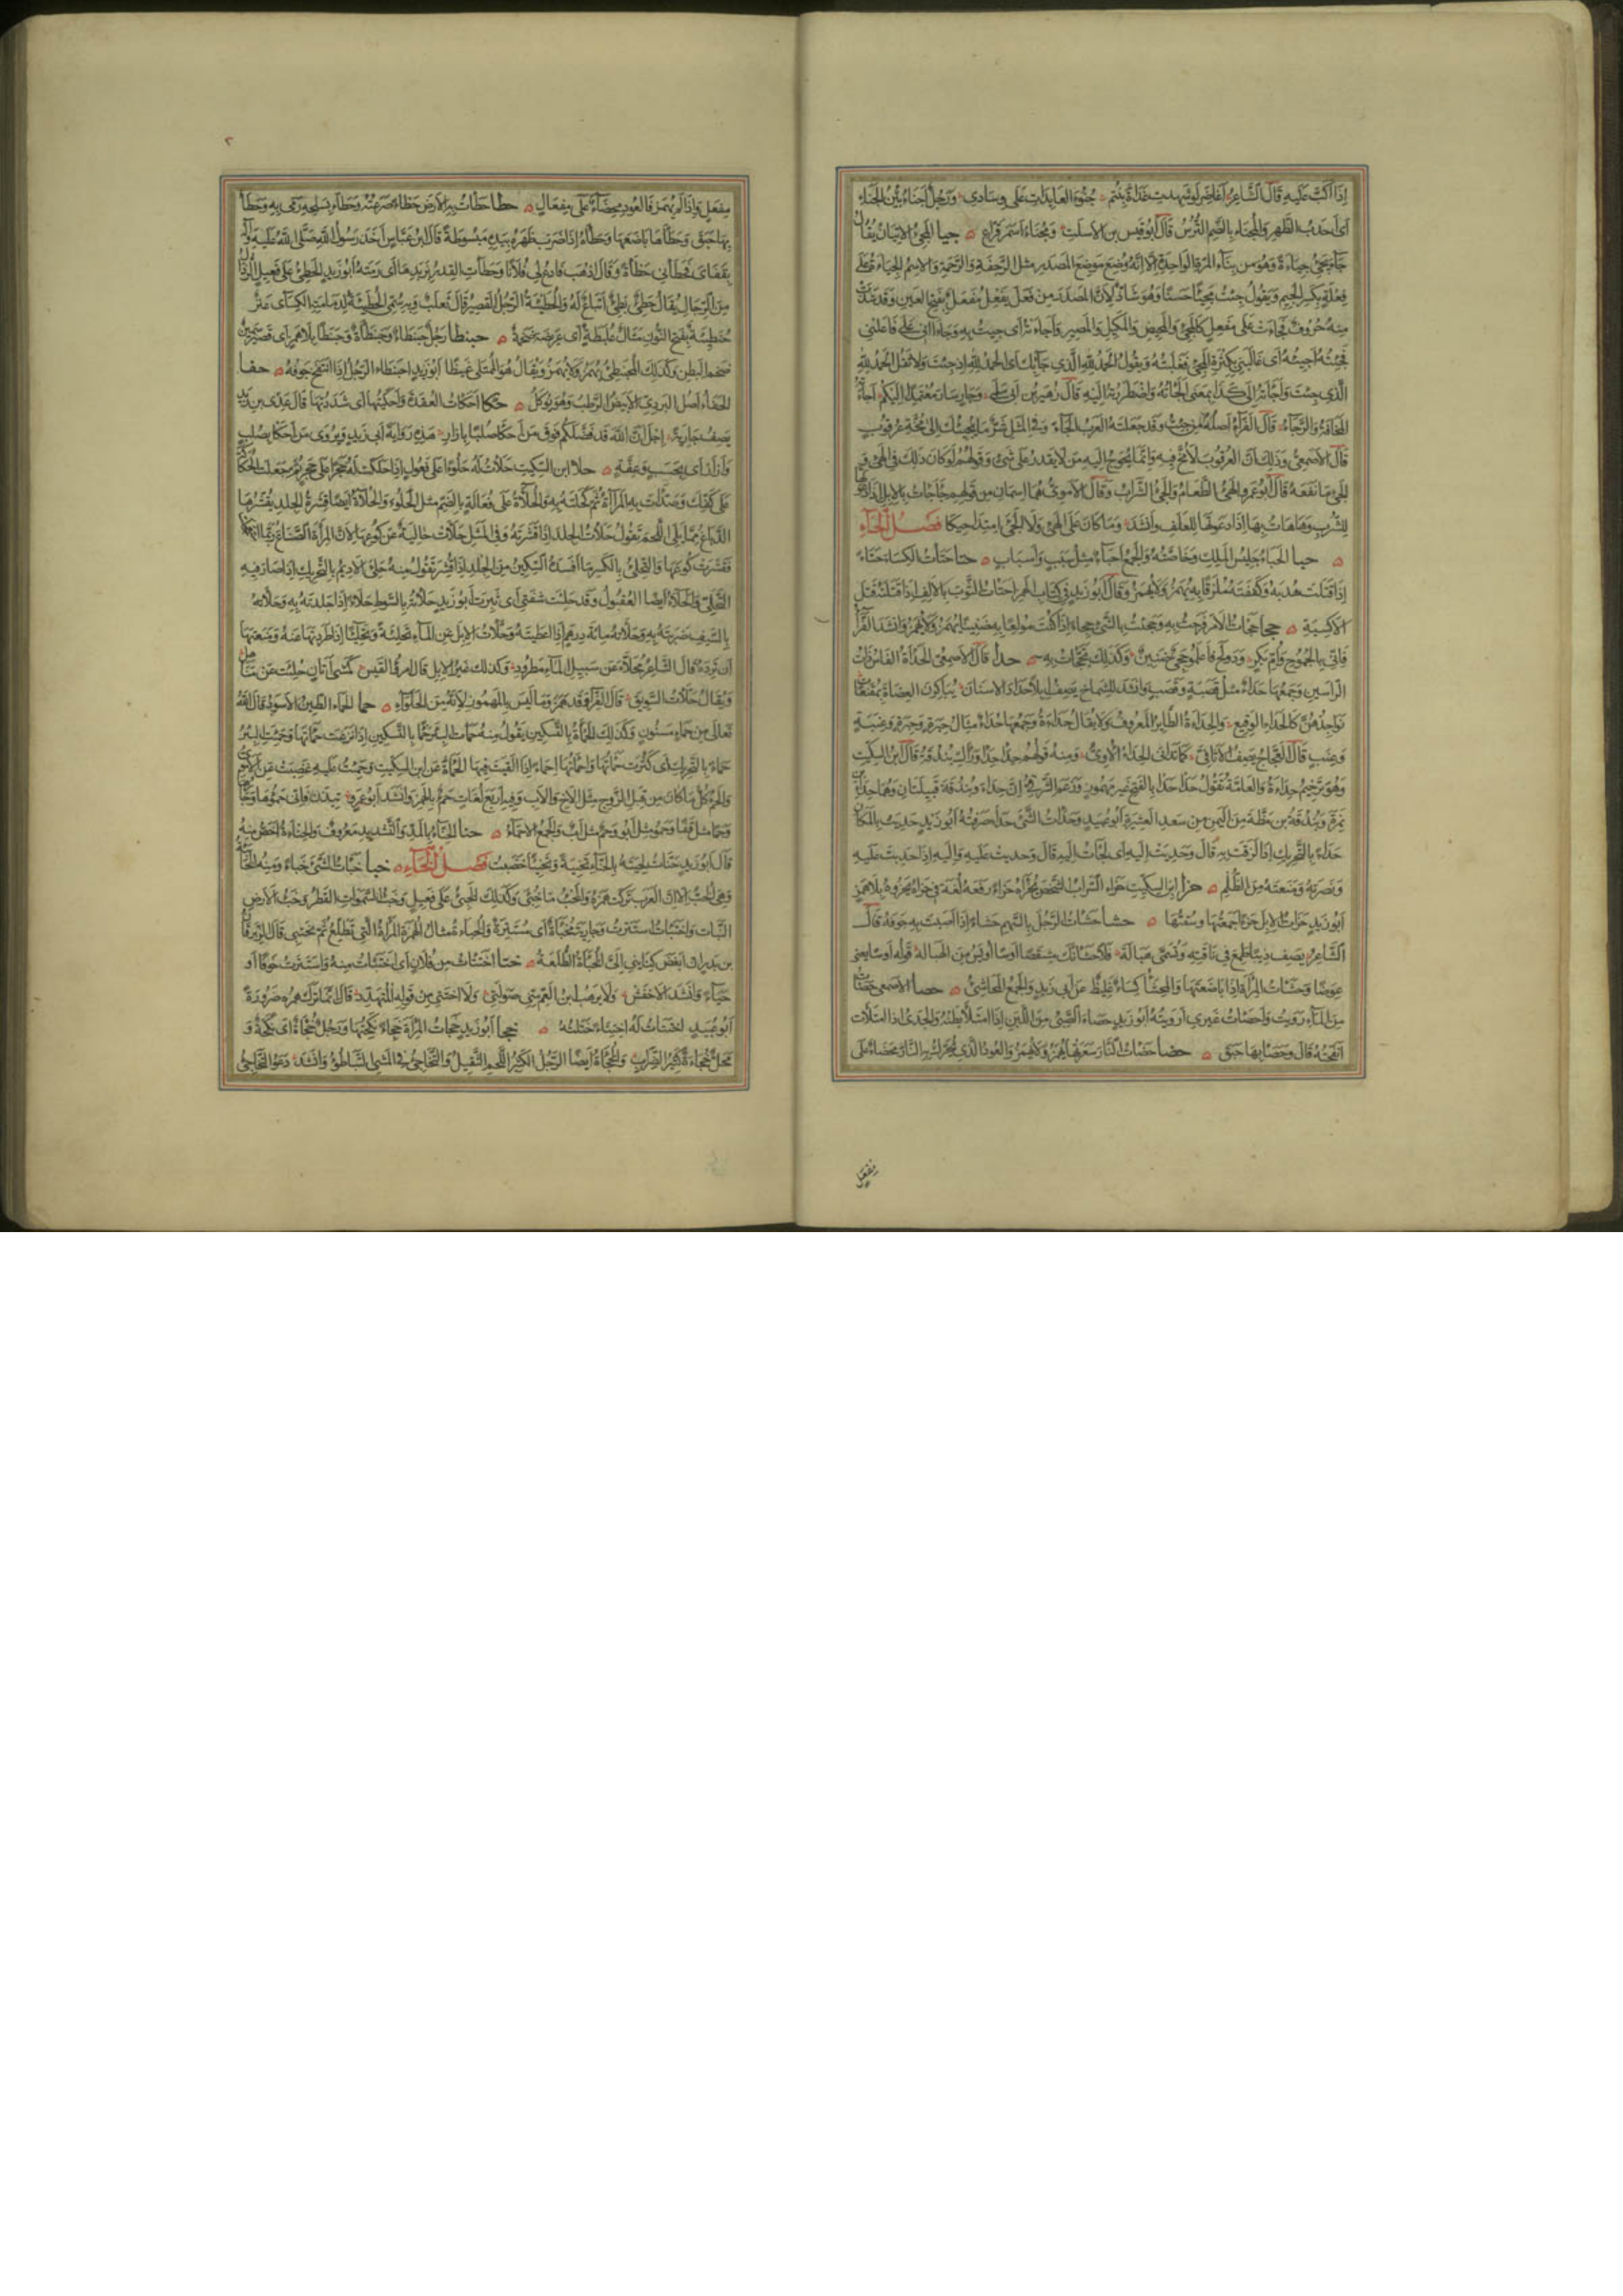 إذا أكب عليه قال الشاعر أغاضر لو شهدت غداة بنتم جنوء العائدات على وسادي ورجل أجنأ بين الجنإ
أي أحدب الظهر والمجنأ بالضم الترس قال أبو قيس بن الأسلت ومجنإ أسمر قراع جيأ المجيء الإتيان يقال
جاء يجيء جيئة وهو من بناء المرة الواحدة إلا أنه وضع موضع المصدر مثل الرجفة والرحمة والاسم الجيئة على
فعلة بكسر الجيم وتقول جئت مجيئا حسنا وهو شاذ لأن المصدر من فعل يفعل مفعل بفتح العين وقد شذت
منه حروف فجاءت على مفعل كالمجيء والمحيض والمكيل والمصير وأجأته أي جئت به وجاءاني على فاعلني
فجئته أجيئه أي غالبني بكثرة المجيء فغلبته وتقول الحمد لله الذي جاء بك أي الحمد لله إذ جئت ولا تقل الحمد لله
الذي جئت وأجأته إلى كذا بمعنى ألجأته واضطررته إليه قال زهير بن أبي سلمى وجار سار معتمدا إليكم أجاءته
المخافة والرجاء قال الفراء أصله من جئت وقد جعلته العرب إلجاء وفي المثل شر ما يجيئك إلى مخة عرقوب
قال الأصمعي وذلك أن العرقوب لا مخ فيه وإنما يحوج إليه من لا يقدر على شيء وقولهم لو كان ذلك في الهيء و
الجيء ما نفعه قال أبو عمرو الهيء الطعام والجيء الشراب وقال الأموي هما اسمان من قولهم جأجأت بالإبل إذا دعوتها
للشرب وهأهأت بها إذا دعوتها للعلف وأنشد وما كان على الهيء ولا الجيء امتداحيكا فصل الحاء
حبأ الحبأ جليس الملك وخاصته والجمع أحباء مثل سبب وأسباب حتأ حتأت الكساء حتأ
إذا فتلت هدبه وكففته ملزقا به يهمز ولا يهمز وقال أبو زيد في كتاب الهمز أحتأت الثوب بالألف إذا فتلته فتل
الأكسية حجأ حجأت بالأمر فرحت به وحجئت بالشيء حجأ إذا كنت مولعا به ضنينا يهمز ولا يهمز وأنشد الفراء
فإني بالجموح وأم بكر ودولح فاعلموا حجئ ضنين وكذلك تحجأت به حدأ قال الأصمعي الحدأة الفأس ذات
الرأسين وجمعها حدأ مثل قصبة وقصب وأنشد للشماخ يصف إبلا حداد الأسنان يباكرن العضاه بمقنعات
نواجذهن كالحدإ الوقيع والحدأة الطائر المعروف ولا يقال حداءة وجمعها حدأ مثال حبرة وحبر وعنبة
وعنب قال العجاج يصف الأثافي كما تدانى الحدأ الأوي ومنه قولهم حدأ حدأ وراءك بندقة قال ابن السكيت
وهو ترخيم حدأة والعامة تقول حدا حدا بالفتح غير مهموز وزعم الشرقي أن حدأ وبندقة قبيلتان وهما حدأ بن
نمرة وبندقة بن مظة من اليمن من سعد العشيرة أبو عبيد وحدأت الشيء حدأ صرفته أبو زيد حدئت بالمكان
حدأ بالتحريك إذا لزقت به قال وحدئت إليه أي لجأت إليه قال وحدئت عليه وإليه إذا حدبت عليه
ونصرته ومنعته من الظلم حزأ ابن السكيت حزأ السراب الشخص يحزأه حزءا رفعه لغة في حزاه يحزوه بلا همز
أبو زيد حزأت الإبل حزءا جمعتها وسقتها حشأ حشأت الرجل بالسهم حشأ إذا أصبت به جوفه قال
الشاعر يصف ذئبا طمع في ناقته وتسمى هبالة فلأحشأنك مشقصا أوسا أويس من الهباله قوله أوسا يعني
عوضا وحشأت المرأة إذا باضعتها والمحشأ كساء غليظ عن أبي زيد والجمع المحاشئ حصأ الأصمعي حصأت
من الماء رويت وأحصأت غيري أرويته أبو زيد حصأ الصبي من اللبن إذا امتلأ بطنه والجدي إذا امتلأت
إنفحته قال وحصأ بها حبق حضأ حضأت النار سعرتها يهمز ولا يهمز والعود الذي تحرك به النار محضأ على
مفعل
مفعل وإذا لم يهمز فالعود محضاء على مفعال حطأ حطأت به الأرض حطأ صرعته وحطأ بسلحه رمى به وحطأ
بها حبق وحطأها باضعها وحطأه إذا ضرب ظهره بيده مبسوطة قال ابن عباس أخذ رسول الله صلى الله عليه وآله
بقفاي فحطأني حطأة وقال اذهب فادع لي فلانا وحطأت القدر بزبدها أي رمته أبو زيد الحطيء على فعيل الرذال
من الرجال يقال حطيء بطيء اتباع له والحطيئة الرجل القصير قال ثعلب وبه سمي الحطيئة لدمامته الكسائي عنز
حنطئة بفتح النون مثال علبطة أي عريضة ضخمة حبنطأ رجل حبنطأ وحبنطأة وحبنطا بلا همز أي قصير سمين
ضخم البطن وكذلك المحبنطئ يهمز ولا يهمز ويقال هو الممتلئ غيظا أبو زيد احبنطأ الرجل إذا انتفخ جوفه حفأ
الحفأ أصل البردي الأبيض الرطب وهو يؤكل حكأ أحكأت العقدة وأحكيتها أي شددتها قال عدي بن زيد
يصف جارية إجل أن الله قد فضلكم فوق من أحكأ صلبا بإزار هذه رواية أبي زيد ويروى من أحكأ بصلب
وإزار أي بحسب وعفة حلأ ابن السكيت حلأت له حلوءا على فعول إذا حككت له حجرا على حجر ثم جعلت الحكاكة
على كفك وصدأت به المرآة ثم كحلته به والحلاءة على فعالة بالضم مثل الحلوء والحلاءة أيضا قشرة الجلد يقشرها
الدباغ مما يلي اللحم تقول حلأت الجلد إذا قشرته وفي المثل حلأت حالئة عن كوعها لأن المرأة الصناع ربما استعجلت
فقشرت كوعها والتحلئ بالكسر ما أفسده السكين من الجلد إذا قشر تقول منه حلئ الأديم بالتحريك إذا صار فيه
التحلئ والحلأ أيضا العقبول وقد حلئت شفتي أي بثرت أبو زيد حلأته بالسوط حلأ إذا جلدته به وحلأته
بالسيف ضربته به وحلأته مائة درهم إذا أعطيته وحلأت الإبل عن الماء تحلئة وتحليئا إذا طردتها عنه ومنعتها
أن ترده قال الشاعر محلأ عن سبيل الماء مطرود وكذلك غير الإبل قال امرؤ القيس كمشي أتان حلئت عن مناهل
ويقال حلأت السويق قال الفراء قد همزوا ما ليس بالمهموز لأنه من الحلواء حمأ الحمأ الطين الأسود قال الله
تعالى من حمإ مسنون وكذلك الحمأة بالتسكين تقول منه حمأت البئر حمأ بالتسكين إذا نزعت حمأتها وحمئت البئر
حمأ بالتحريك أي كثرت حمأتها وأحمأتها إحماء إذا ألقيت فيها الحمأة عن ابن السكيت وحمئت عليه غضبت عن الأموي
والحمء كل ما كان من قبل الزوج مثل الأخ والأب وفيه أربع لغات حمء بالهمز وأنشد أبو عمرو تيذن فإني حمؤها وجارها
وحما مثل قفا وحمو مثل أبو وحم مثل أب والجمع الأحماء حنأ الحناء بالمد والتشديد معروف والحناءة أخص منه
قال أبو زيد حنأت لحيته بالحناء تحنئة وتحنيئا خضبت فصل الخاء خبأ خبأت الشيء خبأ ومنه الخابية
وهي الحب إلا أن العرب تركت همزه والخبء ما خبئ وكذلك الخبيء على فعيل وخبء السموات القطر وخبء الأرض
النبات واختبأت استترت وجارية مخبأة أي مستترة والخبأة مثال الهمزة المرأة التي تطلع ثم تختبئ قال الزبرقان
بن بدر إن أبغض كنائني إلي الخبأة الطلعة ختأ اختتأت من فلان أي اختبأت منه واستترت خوفا أو
حياء وأنشد الأخفش ولا يرهب ابن العم مني صولتي ولا أختتي من قوله المتهدد قال إنما ترك همزه ضرورة
أبو عبيد اختتأت له اختتاء ختلته خجأ أبو زيد خجأت المرأة خجأ نكحتها ورجل خجأة أي نكحة و
فحل خجأة كثير الضراب والخجأة أيضا الرجل الكثير اللحم الثقيل والتخاجؤ في المشي التباطؤ وأنشد دعوا التخاجؤ